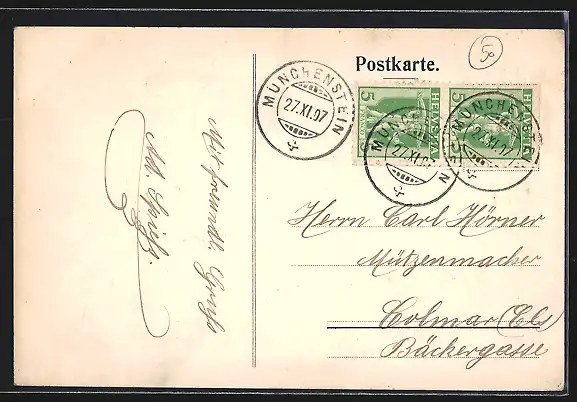 50
Postkarte.
MÜNCHENSTEIN
27.XI.07
HELVETIA
5
HELVETIA
5
MÜNCHENSTEIN
27.XI.07
MÜNCHENSTEIN
27.XI.07
Herrn Carl Hörner
Mützenmacher
Colmar (Els)
Bäckergasse
Mit freundl. Gruß
Ad. Spieß.